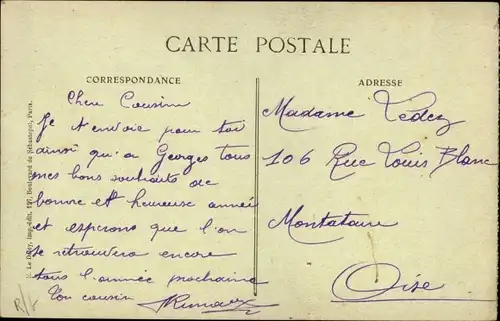 CARTE POSTALE
CORRESPONDANCE
ADRESSE
Chere Cousine
Je t envoie pour toi
ainsi qu'a Georges tous
mes bons souhaits de
bonne et heureuse année
et esperons que l'on
se retrouvera encore
tous l'année prochaine
Ton cousin
Madame
106 Rue Louis Blanc
Montataire
Oise
Imp.-édit., 127, Boulevard de Sébastopol, Paris.